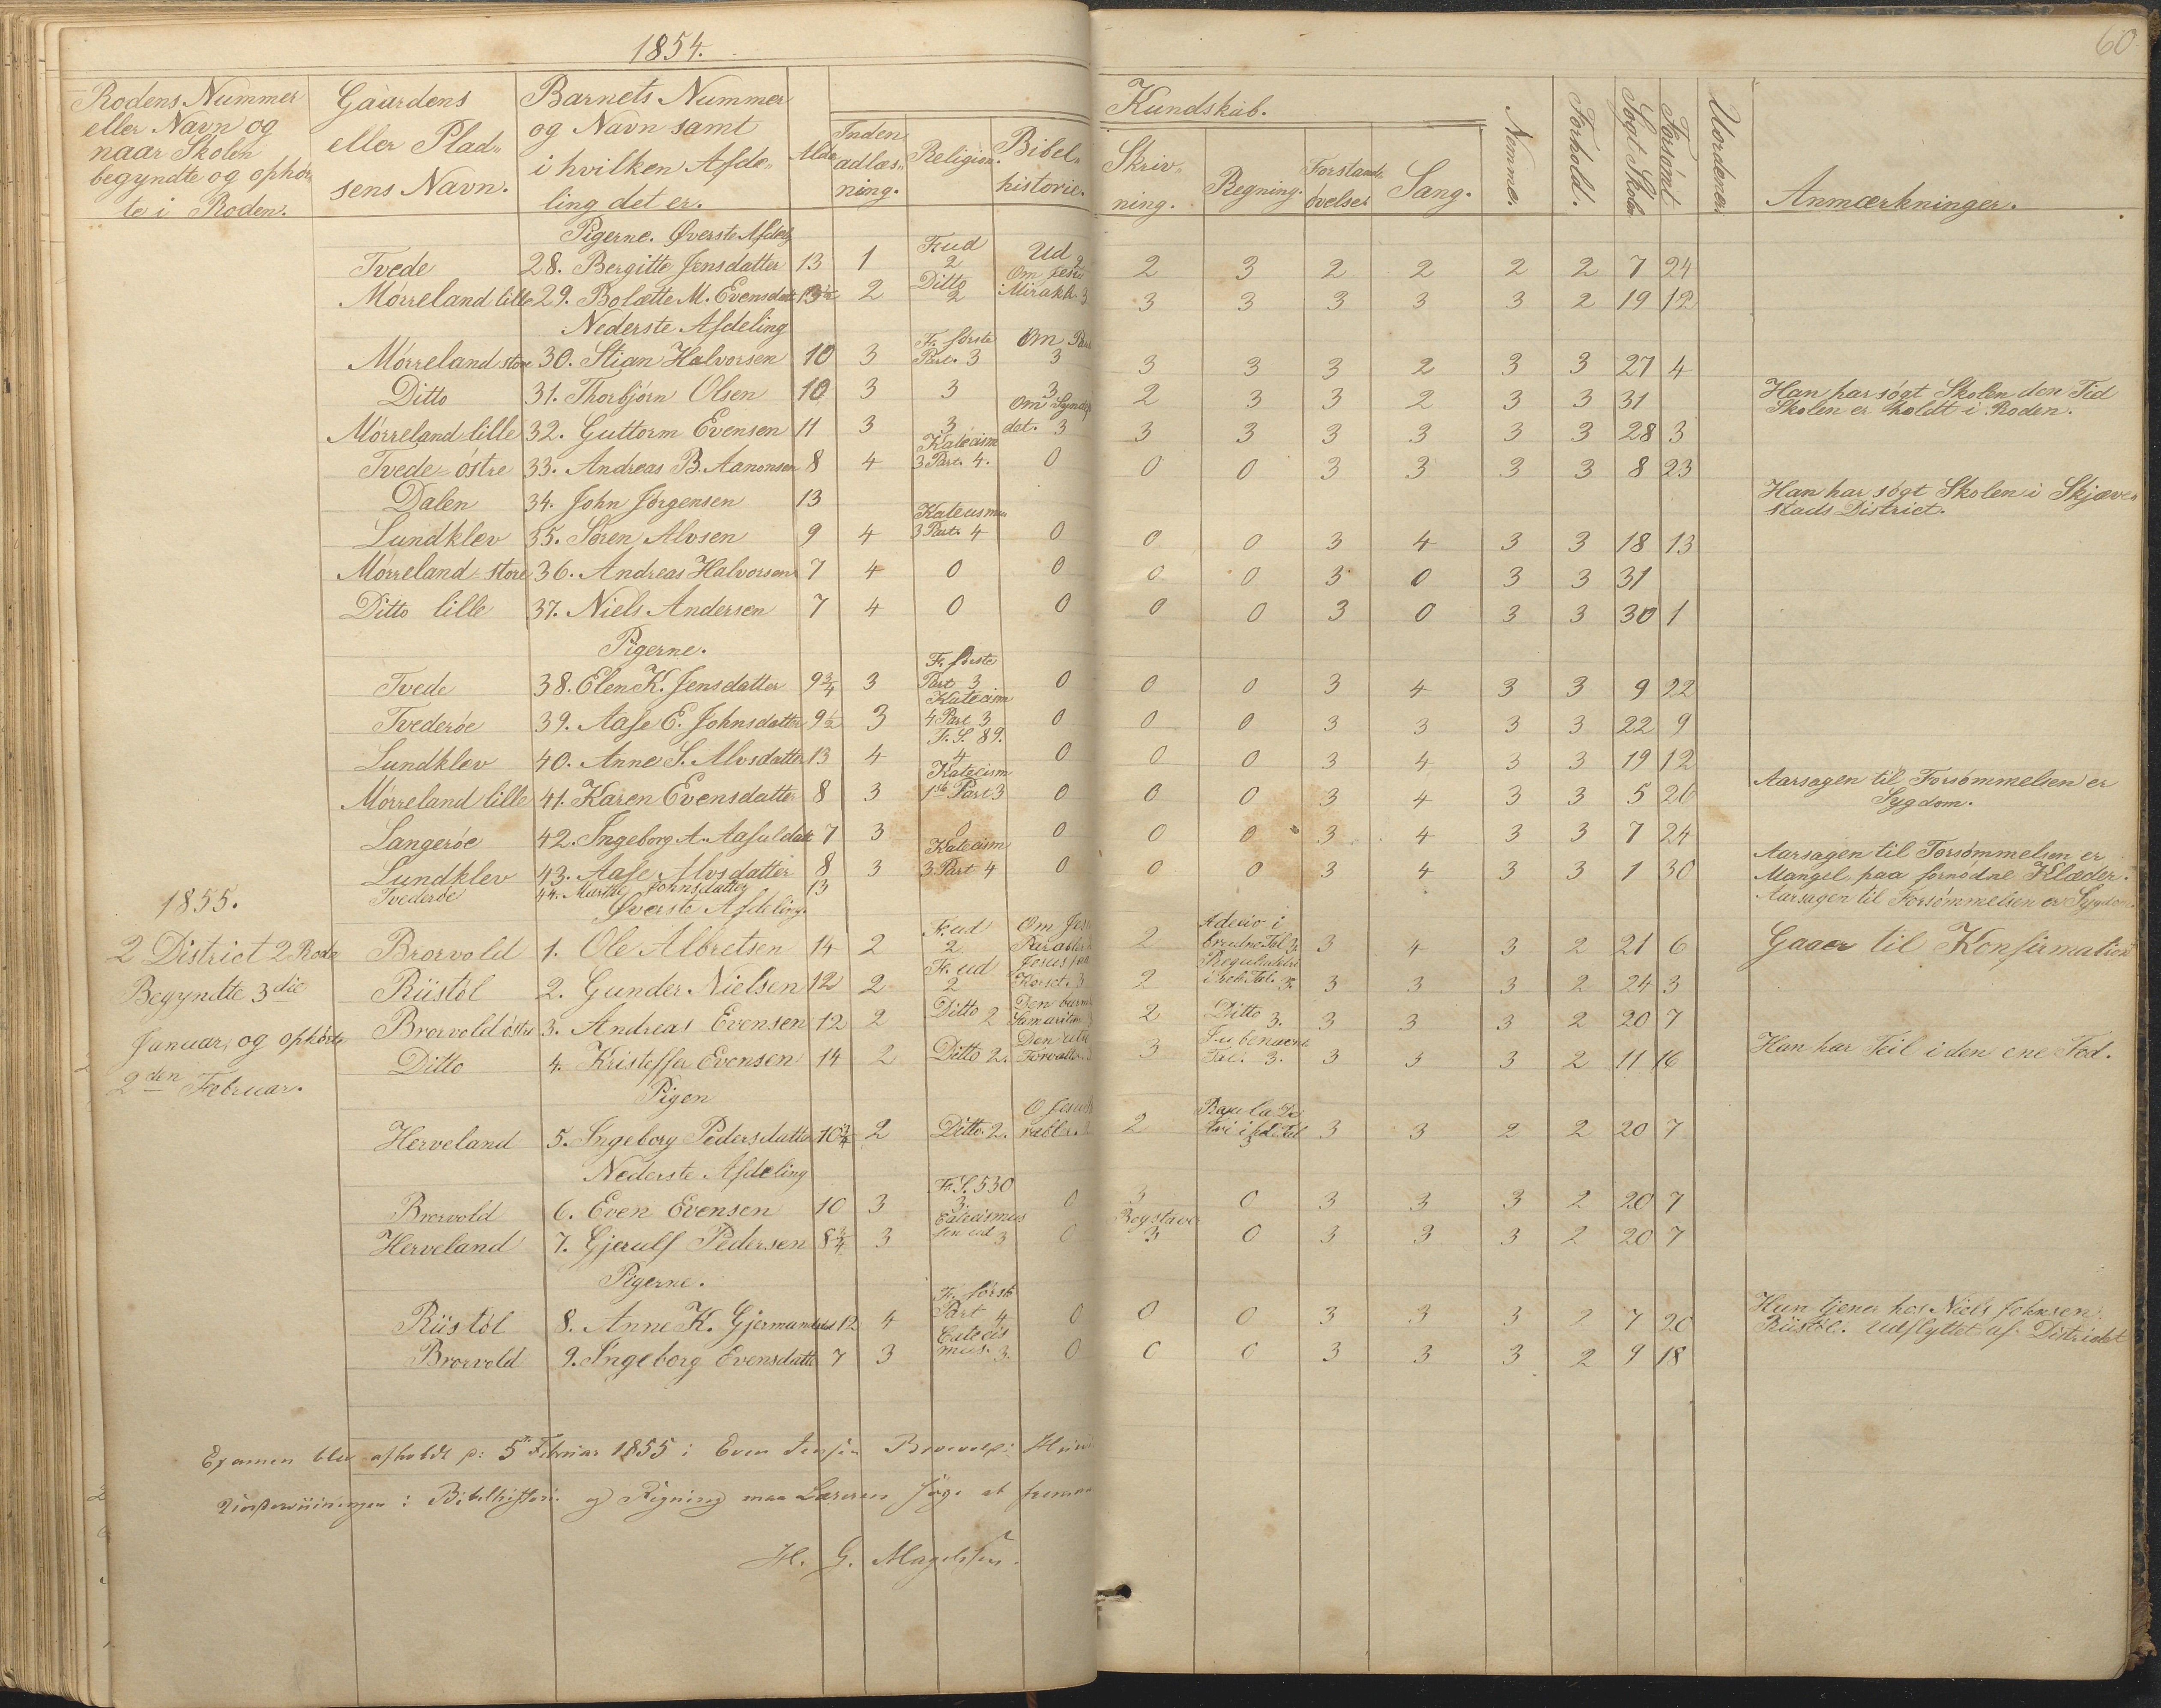 1854.
60
Rodens Nummer eller Navn og naar Skolen begyndte og ophørte i Roden.
Gaardens eller Pladsens Navn.
Barnets Nummer og Navn samt i hvilken Afdeling det er.
Alder
Kundskab.
Indenadlæsning.
Religion.
Bibelhistorie.
Skrivning.
Regning.
Forstandsøvelser
Sang.
Nemme.
Forhold.
Søgt Skolen
Forsømt
Uordener
Anmærkninger.
Pigerne. Øverste Afdeling
Tvede 28. Bergitte Jensdatter 13 1 F. ud 2 Ud 2 2 3 2 2 2 2 7 24
Mörreland lille 29. Bolætte M. Evensdatt 13 2 Ditto 2 Om Jesu Mirakl. 3 3 3 3 3 3 2 19 12
Nederste Afdeling
Mörreland store 30. Stian Halvorsen 10 3 F. første Part. 3 Om 3 3 3 3 2 3 3 27 4
Ditto 31. Thorbjörn Olsen 10 3 3 3 2 3 3 2 3 3 31 Han har søgt Skolen den Tid Skolen er holdt i Roden.
Mörreland lille 32. Guttorm Evensen 11 3 3 Om Syndfl det. 3 3 3 3 3 3 3 28 3
Tvede östre 33. Andreas B. Aanonsen 8 4 Katecism 3 Part. 4. 0 0 0 3 3 3 3 8 23
Dalen 34. John Jörgensen 13 Han har søgt Skolen i Skjævestads District.
Lundklev 35. Sören Alvsen 9 4 Katecismus 3 Part. 4 0 0 0 3 4 3 3 18 13
Mörreland store 36. Andreas Halvorsen 7 4 0 0 0 0 3 0 3 3 31
Ditto lille 37. Niels Andersen 7 4 0 0 0 0 3 0 3 3 30 1
Pigerne.
Tvede 38. Elen K. Jensdatter 9¾ 3 F. første Part 3 0 0 0 3 4 3 3 9 22
Tvederöe 39. Aase E. Johnsdatter 9½ 3 Katecism 4 Part 3 0 0 0 3 3 3 3 22 9
Lundklev 40. Anne S. Alvsdatter 13 4 F. S. 89. 4 0 0 0 3 4 3 3 19 12
Mörreland lille 41. Karen Evensdatter 8 3 Katecism 1ste Part 3 0 0 0 3 4 3 3 5 26 Aarsagen til Forsømmelsen er Sygdom.
Langeröe 42. Ingeborg A. Aasuldatt 7 3 0 0 0 0 3 4 3 3 7 24
Lundklev 43. Aase Alvsdatter 8 3 Katecism 3 Part 4 0 0 0 3 4 3 3 1 30 Aarsagen til Forsømmelsen er Mangel paa fornødne Klæder.
Tvederöe 44. Marthe Johnsdatter 13 Aarsagen til Forsømmelsen er Sygdom.
1855.
2 District 2 Rode
Begyndte 3die
Januar, og ophørte
2den Februar.
Øverste Afdeling.
Brorvold 1. Ole Albretsen 14 2 F. ud 2 Om Jesu Parabler 2 Adetio i brudne Tal 3. 3 4 3 2 21 6 Gaaer til Konfirmation
Riistöl 2. Gunder Nielsen 12 2 F. ud 2 Jesus paa Korset. 3 2 3. 3 3 3 2 24 3
Brorvold östre 3. Andreas Evensen 12 2 Ditto 2 Den barm Samaritan 2 Ditto 3. 3 3 3 2 20 7
Ditto 4. Kristeffer Evensen 14 2 Ditto 2. Den utro Forvalter. 3 Tal. 3. 3 3 3 2 11 16 Han har Feil i den ene Fod.
Pigen
Herveland 5. Ingeborg Pedersdatter 10¾ 2 Ditto. 2. 2 3 3 3 2 2 20 7
Nederste Afdeling
Brorvold 6. Even Evensen 10 3 F. S. 530 3. 0 3 0 3 3 3 2 20 7
Herveland 7. Gjeruls Pedersen 8¾ 3 Catecismus 3 0 Bogstaver 3 0 3 3 3 2 20 7
Pigerne.
Riistöl 8. Anne K. Gjermundsdat 12 4 F. første Part 4 0 0 0 3 3 3 2 7 20 Hun tjener hos Niels Johnsen Riistöl. Udflyttet af Districtet
Brorvold 9. Ingeborg Evensdatt 7 3 Catecismus. 3. 0 0 0 3 3 3 2 9 18
Examen blev afholdt p: 5te Februar 1855 i Even Brorvold
i Bibelhistorie og Regning maa Læreren søge at
H. G. Magelssen.